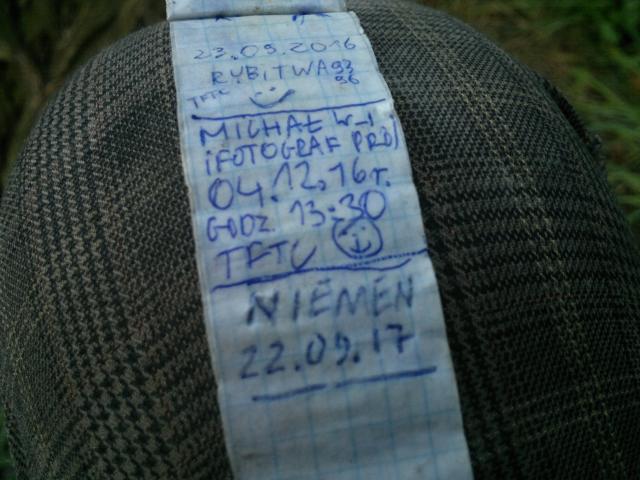 23.09.2016
RYBITWA 93
96
TFTC
MICHAŁ W-I
(FOTOGRAF PRO)
04.12.16r.
GODZ. 13:30
TFTC
NIEMEN
22.09.17